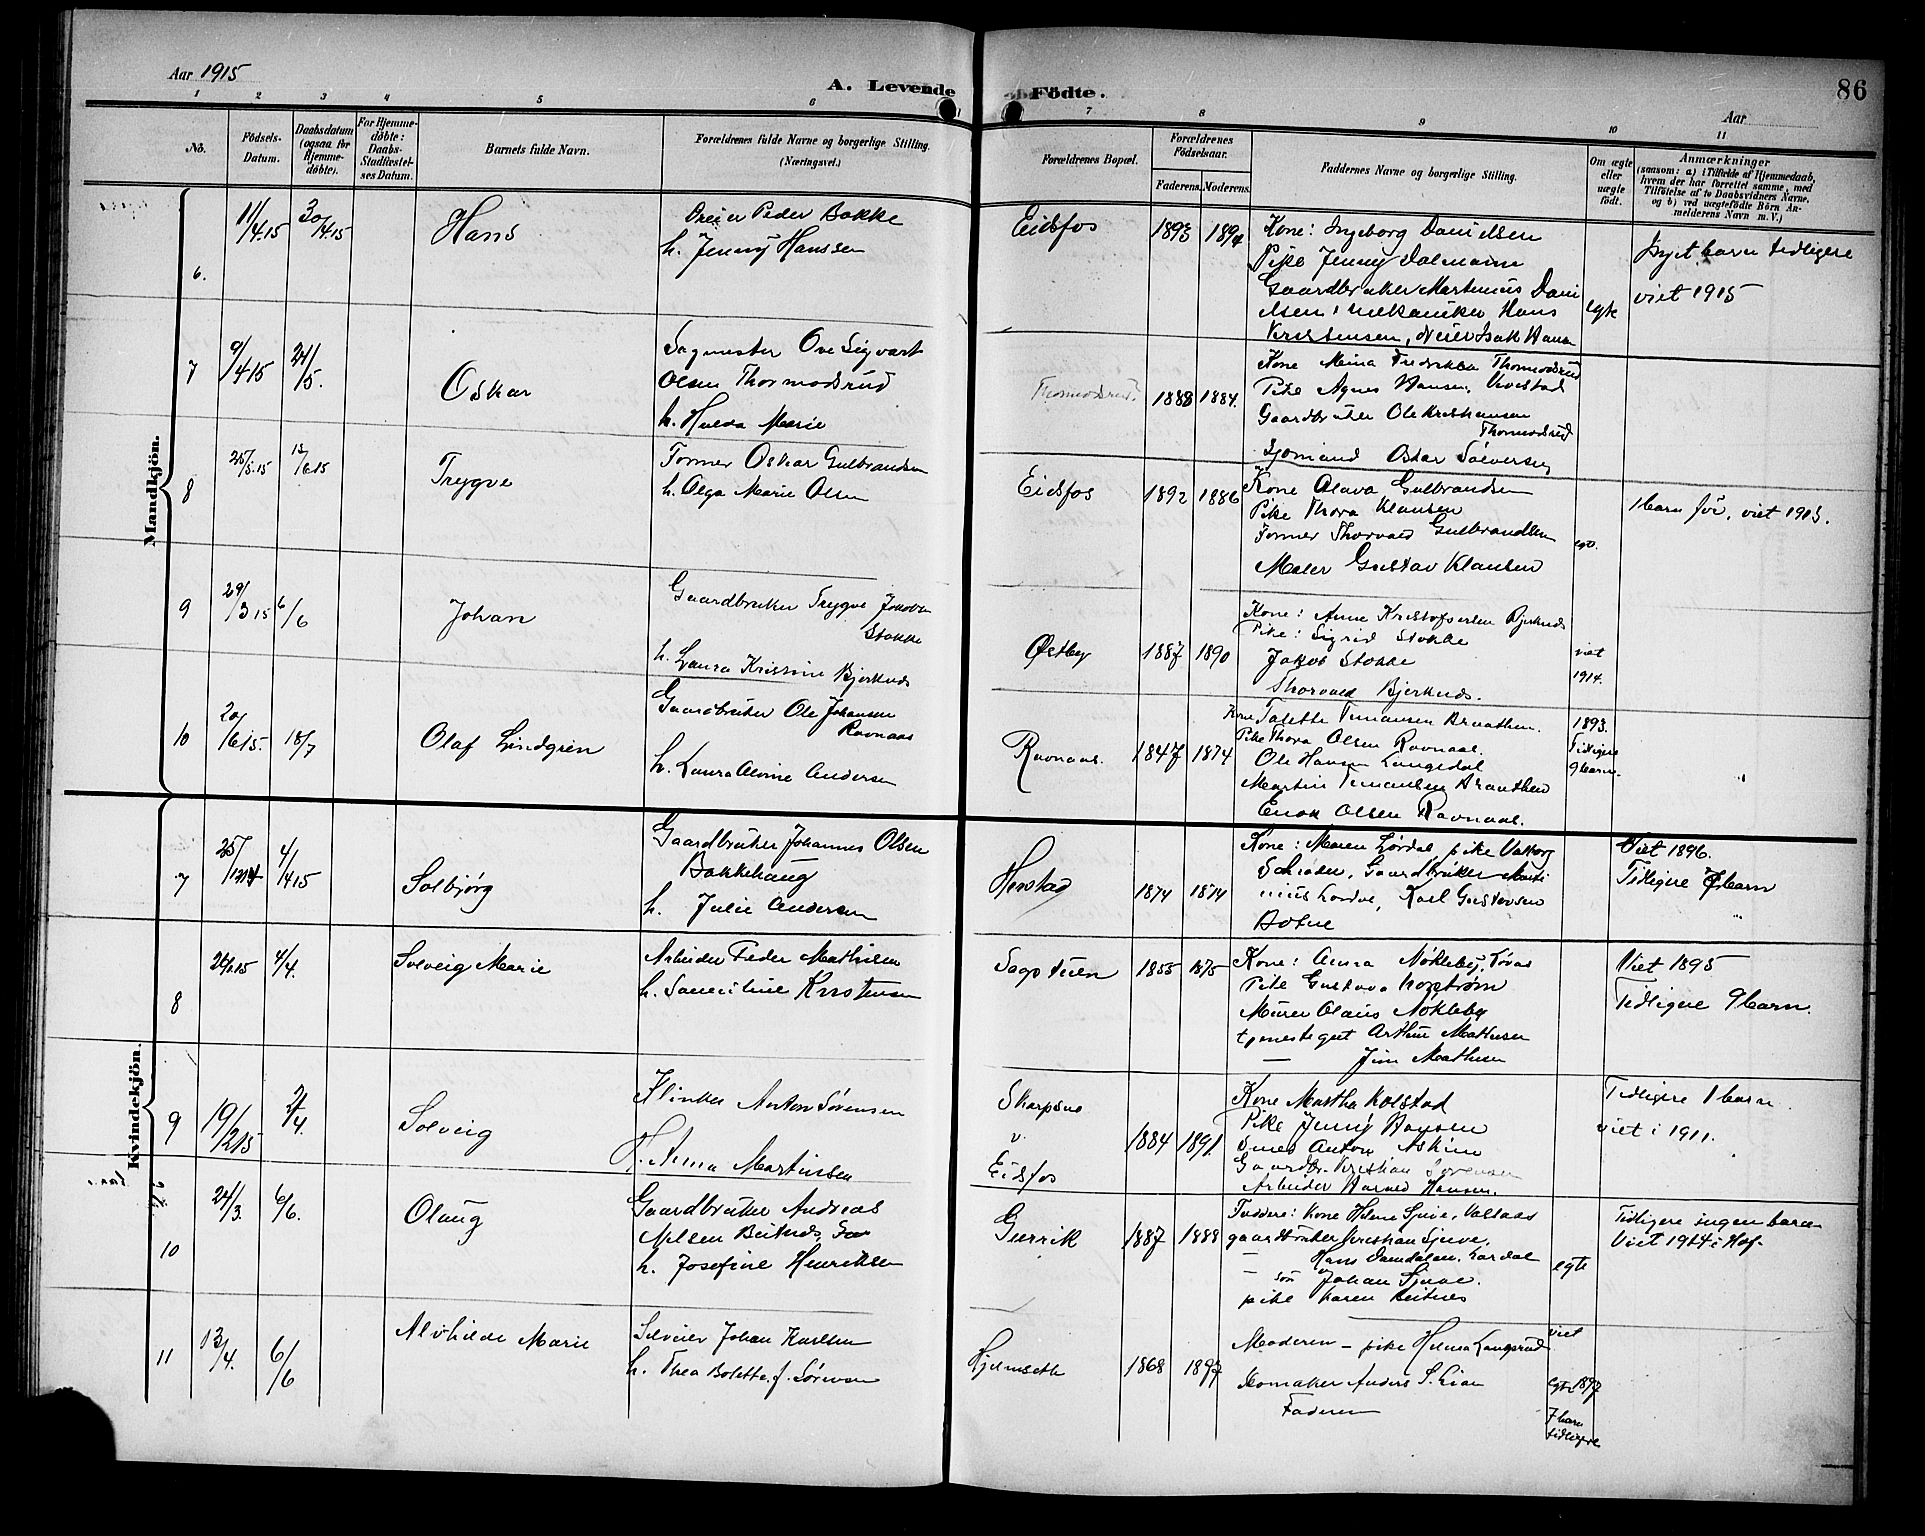 Aar 1915
A. Levende Födte.
86
Aar
1 2 3 4 5 6 7 8 9 10 11
No.
Födsels-Datum.
Daabsdatum (ogsaa for Hjemmedøbte).
For Hjemmedøbte: Daabs-Stadfæstelses Datum.
Barnets fulde Navn.
Forældrenes fulde Navne og borgerlige Stilling. (Næringsvei.)
Forældrenes Bopæl.
Forældrenes Fødselsaar.
Faderens. Moderens.
Faddernes Navne og borgerlige Stilling.
Om ægte eller uægte født.
Anmærkninger
(saasom: a) i Tilfælde af Hjemmedaab, hvem der har forrettet samme, med Tilføielse af to Daabsvidners Navne, og b) ved uægtefødte Börn Anmelderens Navn m. V.)
Mandkjön.
6. 11/4.15 30/4.15 Hans
Dreier Peder Bakke
h. Jenny Hanssen
Eidsfos 1893 1894
Kone: Ingeborg Danielsen
Pike Jenny Dalmann
Gaardbruker Martinius Dani
elsen, mekaniker Hans
Kristensen,
egte
barn tidligere
viet 1915
7 9/4 15 24/5. Oskar
Sagmester Ove Sigvart
Olsen Thormodsrud
h. Hulda Marie
Thormodsrud. 1888 1884.
Kone Mina Fredrikke Thormodsrud
Pike Agnes Hansen,
Gaardbruker Ole Kristiansen
Thormodsrud
Sjømand Oskar
8 25/5.15 13/6.15 Trygve
Former Oskar Gulbrandsen
h. Olga Marie Olsen
Eidsfos 1892 1886
Kone Olava Gulbrandsen
Pike Thora Klausen
Former Thorvald Gulbrandsen
Maler Gustav Klausen
1 barn før, viet 1913.
9 29/3 15 6/6 Johan
Gaardbruker Trygve Jakobsen
Stokke
h. Laura Kristine Bjerknes
Østby 1887 1890
Kone: Anne Kristofersen Bjerknes
Pike: Sigrid Stokke
Jakob Stokke
Thorvald Bjerknes.
viet
1914.
10 20/6 15. 18/7 Olaf Lindgren
Gaardbruker Ole Johansen
Ravnaas
h. Laura Alvine Andersen
Ravnaas. 1847 1874
Kone Talette Braathen.
Pike Thora Olsen Ravnaas.
Ole Hansen Langedal
Martin Braathen
Enok Olsen Ravnaas.
1893.
Tidligere
9 barn.
Kvindekjön.
7 25/12 14 4/4 15 Solbjørg
Gaardbruker Johannes Olsen
Bakkehaug
h. Julie Andersen
1874 1874
Kone: Maren Lørdal, pike Valborg
Gaardbruker Marti
nius Lørdal, Karl Gustavsen
Botne
Viet 1896.
Tidligere barn
8 4/4. Solveig Marie
Arbeider Peder Mathisen
h. Kristensen
1855 1875
Kone: Anna Nøkleby,
Pike Gustava
Murer Olaus Nøkleby
tjenestegut Arthur Mathisen
— Jim Mathisen
Viet 1895
Tidligere 9 barn.
9 19/2 15 2/4. Solveig
Klinker Anton Sørensen
h. Anna Martinsen
v. Eidsfos
1884 1891
Kone Martha Kolstad
Pike Jenny Hansen
Smed Anton Askim
Gaardbr. Kristian Sørensen
Arbeider Harald Hansen.
Tidligere 1 barn
viet i 1911.
10 24/3. 6/6. Olaug
Gaardbruker Andreas
Nilsen
h. Josefine Henriksen
1887 1888
Faddere: Kone Helene
gaardbruker Kristian
— Hans Lardal
— søn Johan
pike Karen
egte
Tidligere ingen barn
Viet 1914 i Hof.
11 13/4. 6/6 Alvhilde Marie
Selveier Johan Karlsen
h. Thea Bolette f. Sørensen
Hjelmseth 1868 1877
Moderen — pike Helma Langsrud
Skomaker Anders S. Lian
Faderen
viet
egte 1897
7 barn
tidligere